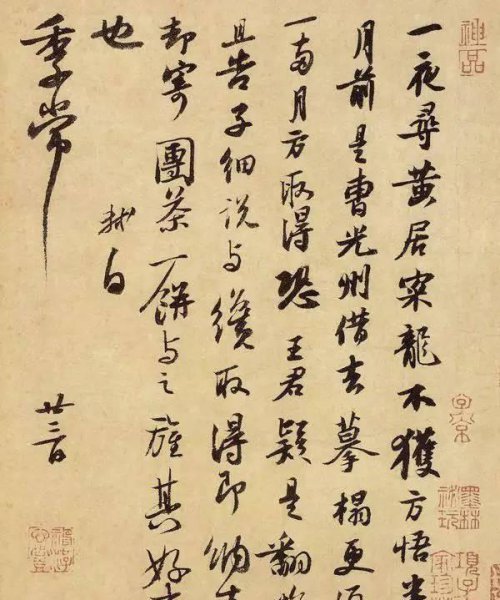 神品
一夜尋黄居寀龍不獲方悟
月前是曹光州借去摹搨更
一兩月方取得恐王君疑是翻
且告子細說与纔取得即納
却寄團茶一餅与之旌其好
也
軾白
季常
廿三日
子京
墨林秘玩